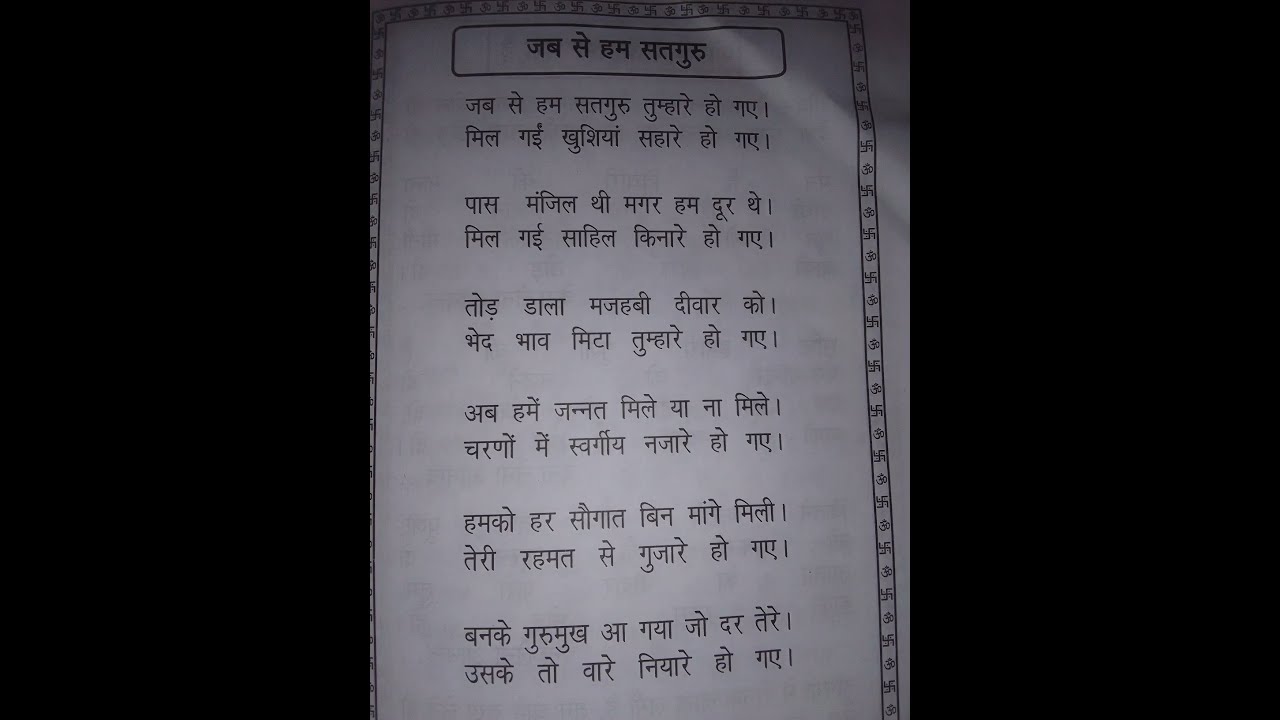 जब से हम सतगुरु
जब से हम सतगुरु तुम्हारे हो गए।
मिल गईं खुशियां सहारे हो गए।
पास मंजिल थी मगर हम दूर थे।
मिल गई साहिल किनारे हो गए।
तोड़ डाला मजहबी दीवार को।
भेद भाव मिटा तुम्हारे हो गए।
अब हमें जन्नत मिले या ना मिले।
चरणों में स्वर्गीय नजारे हो गए।
हमको हर सौगात बिन मांगे मिली।
तेरी रहमत से गुजारे हो गए।
बनके गुरुमुख आ गया जो दर तेरे।
उसके तो वारे नियारे हो गए।